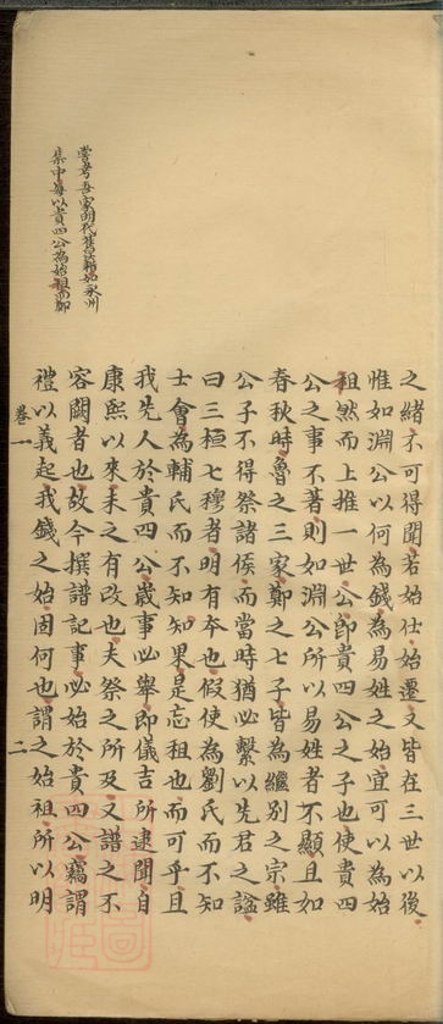 之緒不可得聞若始仕始遷又皆在三世以後
惟如淵公以何為錢為易姓之始宜可以為始
祖然而上推一世公即貴四公之子也使貴四
公之事不著則如淵公所以易姓者不顯且如
春秋時魯之三家鄭之七子皆為繼別之宗雖
公子不得祭諸侯而當時猶必繫以先君之謚
曰三桓七穆者明有本也假使為劉氏而不知
士會為輔氏而不知知果是忘祖也而可乎且
我先人於貴四公歲事必舉即儀吉所逮聞自
康熙以來未之有改也夫祭之所及又譜之不
容闕者也故今撰譜記事必始於貴四公竊謂
禮以義起我錢之始固何也謂之始祖所以明
嘗考吾家明代舊譜如永州
集中每以貴四公為始祖而鄭
卷一
二